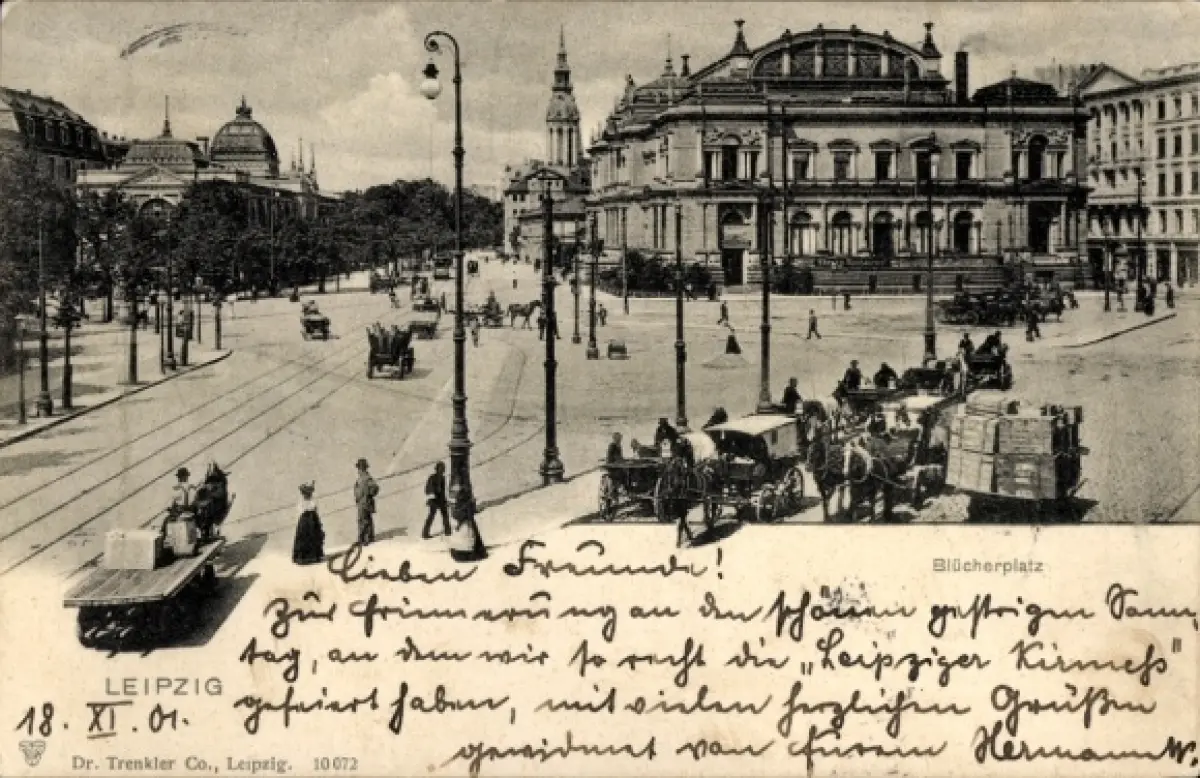 Lieben Freunde!
Blücherplatz
Zur Erinnerung an den schönen gestrigen Sonn-
tag, an dem wir so recht die „Leipziger Kirmeß"
LEIPZIG
gefeiert haben, mit vielen herzlichen Grüßen
18. XI. 01.
gewidmet von Eurem Hermann
Dr. Trenkler Co., Leipzig. 10072